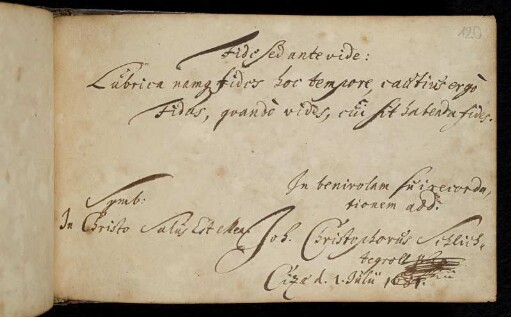 120
Fide sed ante vide:
Lubrica namq fides hoc tempore, cautius ergò
Fidas, quandò vides, cui sit habenda fides.
In benivolam sui recorda,
tionem add:
Symb:
In Christo Salus Est Mea.
Joh. Christophorus Schlich-
tegroll
Cizæ d. 1. Julii 1681.